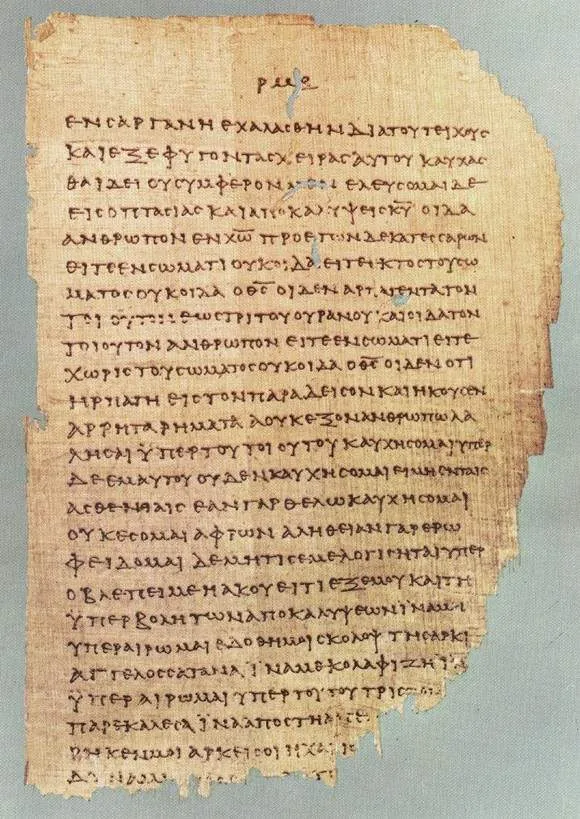 ΕΝϹΑΡΓΑΝΗΕΧΑΛΑϹΘΗΝΔΙΑΤΟΥΤΕΙΧΟΥϹ
ΚΑΙΕΞΕΦΥΓΟΝΤΑϹΧΕΙΡΑϹΑΥΤΟΥΚΑΥΧΑϹ
ΘΑΙΔΕΙΟΥϹΥΜΦΕΡΟΝΜΕΝΕΛΕΥϹΟΜΑΙΔΕ
ΕΙϹΟΠΤΑϹΙΑϹΚΑΙΑΠΟΚΑΛΥΨΕΙϹΚ̅Υ̅ΟΙΔΑ
ΑΝΘΡΩΠΟΝΕΝΧ̅Ω̅ΠΡΟΕΤΩΝΔΕΚΑΤΕϹϹΑΡΩΝ
ΕΙΤΕΕΝϹΩΜΑΤΙΟΥΚΟΙΔΑΕΙΤΕΕΚΤΟϹΤΟΥϹΩ
ΜΑΤΟϹΟΥΚΟΙΔΑΟΘ̅Ϲ̅ΟΙΔΕΝΑΡΠΑΓΕΝΤΑΤΟΝ
ΤΟΙΟΥΤΟΝΕΩϹΤΡΙΤΟΥΟΥΡΑΝΟΥΚΑΙΟΙΔΑΤΟΝ
ΤΟΙΟΥΤΟΝΑΝΘΡΩΠΟΝΕΙΤΕΕΝϹΩΜΑΤΙΕΙΤΕ
ΧΩΡΙϹΤΟΥϹΩΜΑΤΟϹΟΥΚΟΙΔΑΟΘ̅Ϲ̅ΟΙΔΕΝΟΤΙ
ΗΡΠΑΓΗΕΙϹΤΟΝΠΑΡΑΔΕΙϹΟΝΚΑΙΗΚΟΥϹΕΝ
ΑΡΡΗΤΑΡΗΜΑΤΑΑΟΥΚΕΞΟΝΑΝΘΡΩΠΩΛΑ
ΛΗϹΑΙΫΠΕΡΤΟΥΤΟΙΟΥΤΟΥΚΑΥΧΗϹΟΜΑΙΥΠΕΡ
ΔΕΕΜΑΥΤΟΥΟΥΔΕΝΚΑΥΧΗϹΟΜΑΙΕΙΜΗΕΝΤΑΙϹ
ΑϹΘΕΝΕΙΑΙϹΕΑΝΓΑΡΘΕΛΩΚΑΥΧΗϹΟΜΑΙ
ΟΥΚΕϹΟΜΑΙΑΦΡΩΝΑΛΗΘΕΙΑΝΓΑΡΕΡΩ
ΦΕΙΔΟΜΑΙΔΕΜΗΤΙϹΕΜΕΛΟΓΙϹΗΤΑΙΥΠΕΡ
ΟΒΛΕΠΕΙΜΕΗΑΚΟΥΕΙΤΙΕΞΕΜΟΥΚΑΙΤΗ
ΫΠΕΡΒΟΛΗΤΩΝΑΠΟΚΑΛΥΨΕΩΝΪΝΑΜΗ
ΥΠΕΡΑΙΡΩΜΑΙΕΔΟΘΗΜΟΙϹΚΟΛΟΨΤΗϹΑΡΚΙ
ΑΓΓΕΛΟϹϹΑΤΑΝΑΪΝΑΜΕΚΟΛΑΦΙΖΗΪΝΑ
ΫΠΕΡΑΙΡΩΜΑΙΥΠΕΡΤΟΥΤΟΥΤΡΙϹ
ΠΑΡΕΚΑΛΕϹΑΪΝΑΑΠΟϹΤΗΑΠΕ
ΡΗΚΕΝΜΟΙΑΡΚΕΙϹΟΙΗΧΑΡΙϹ
ΔΥΝΑΜΙ